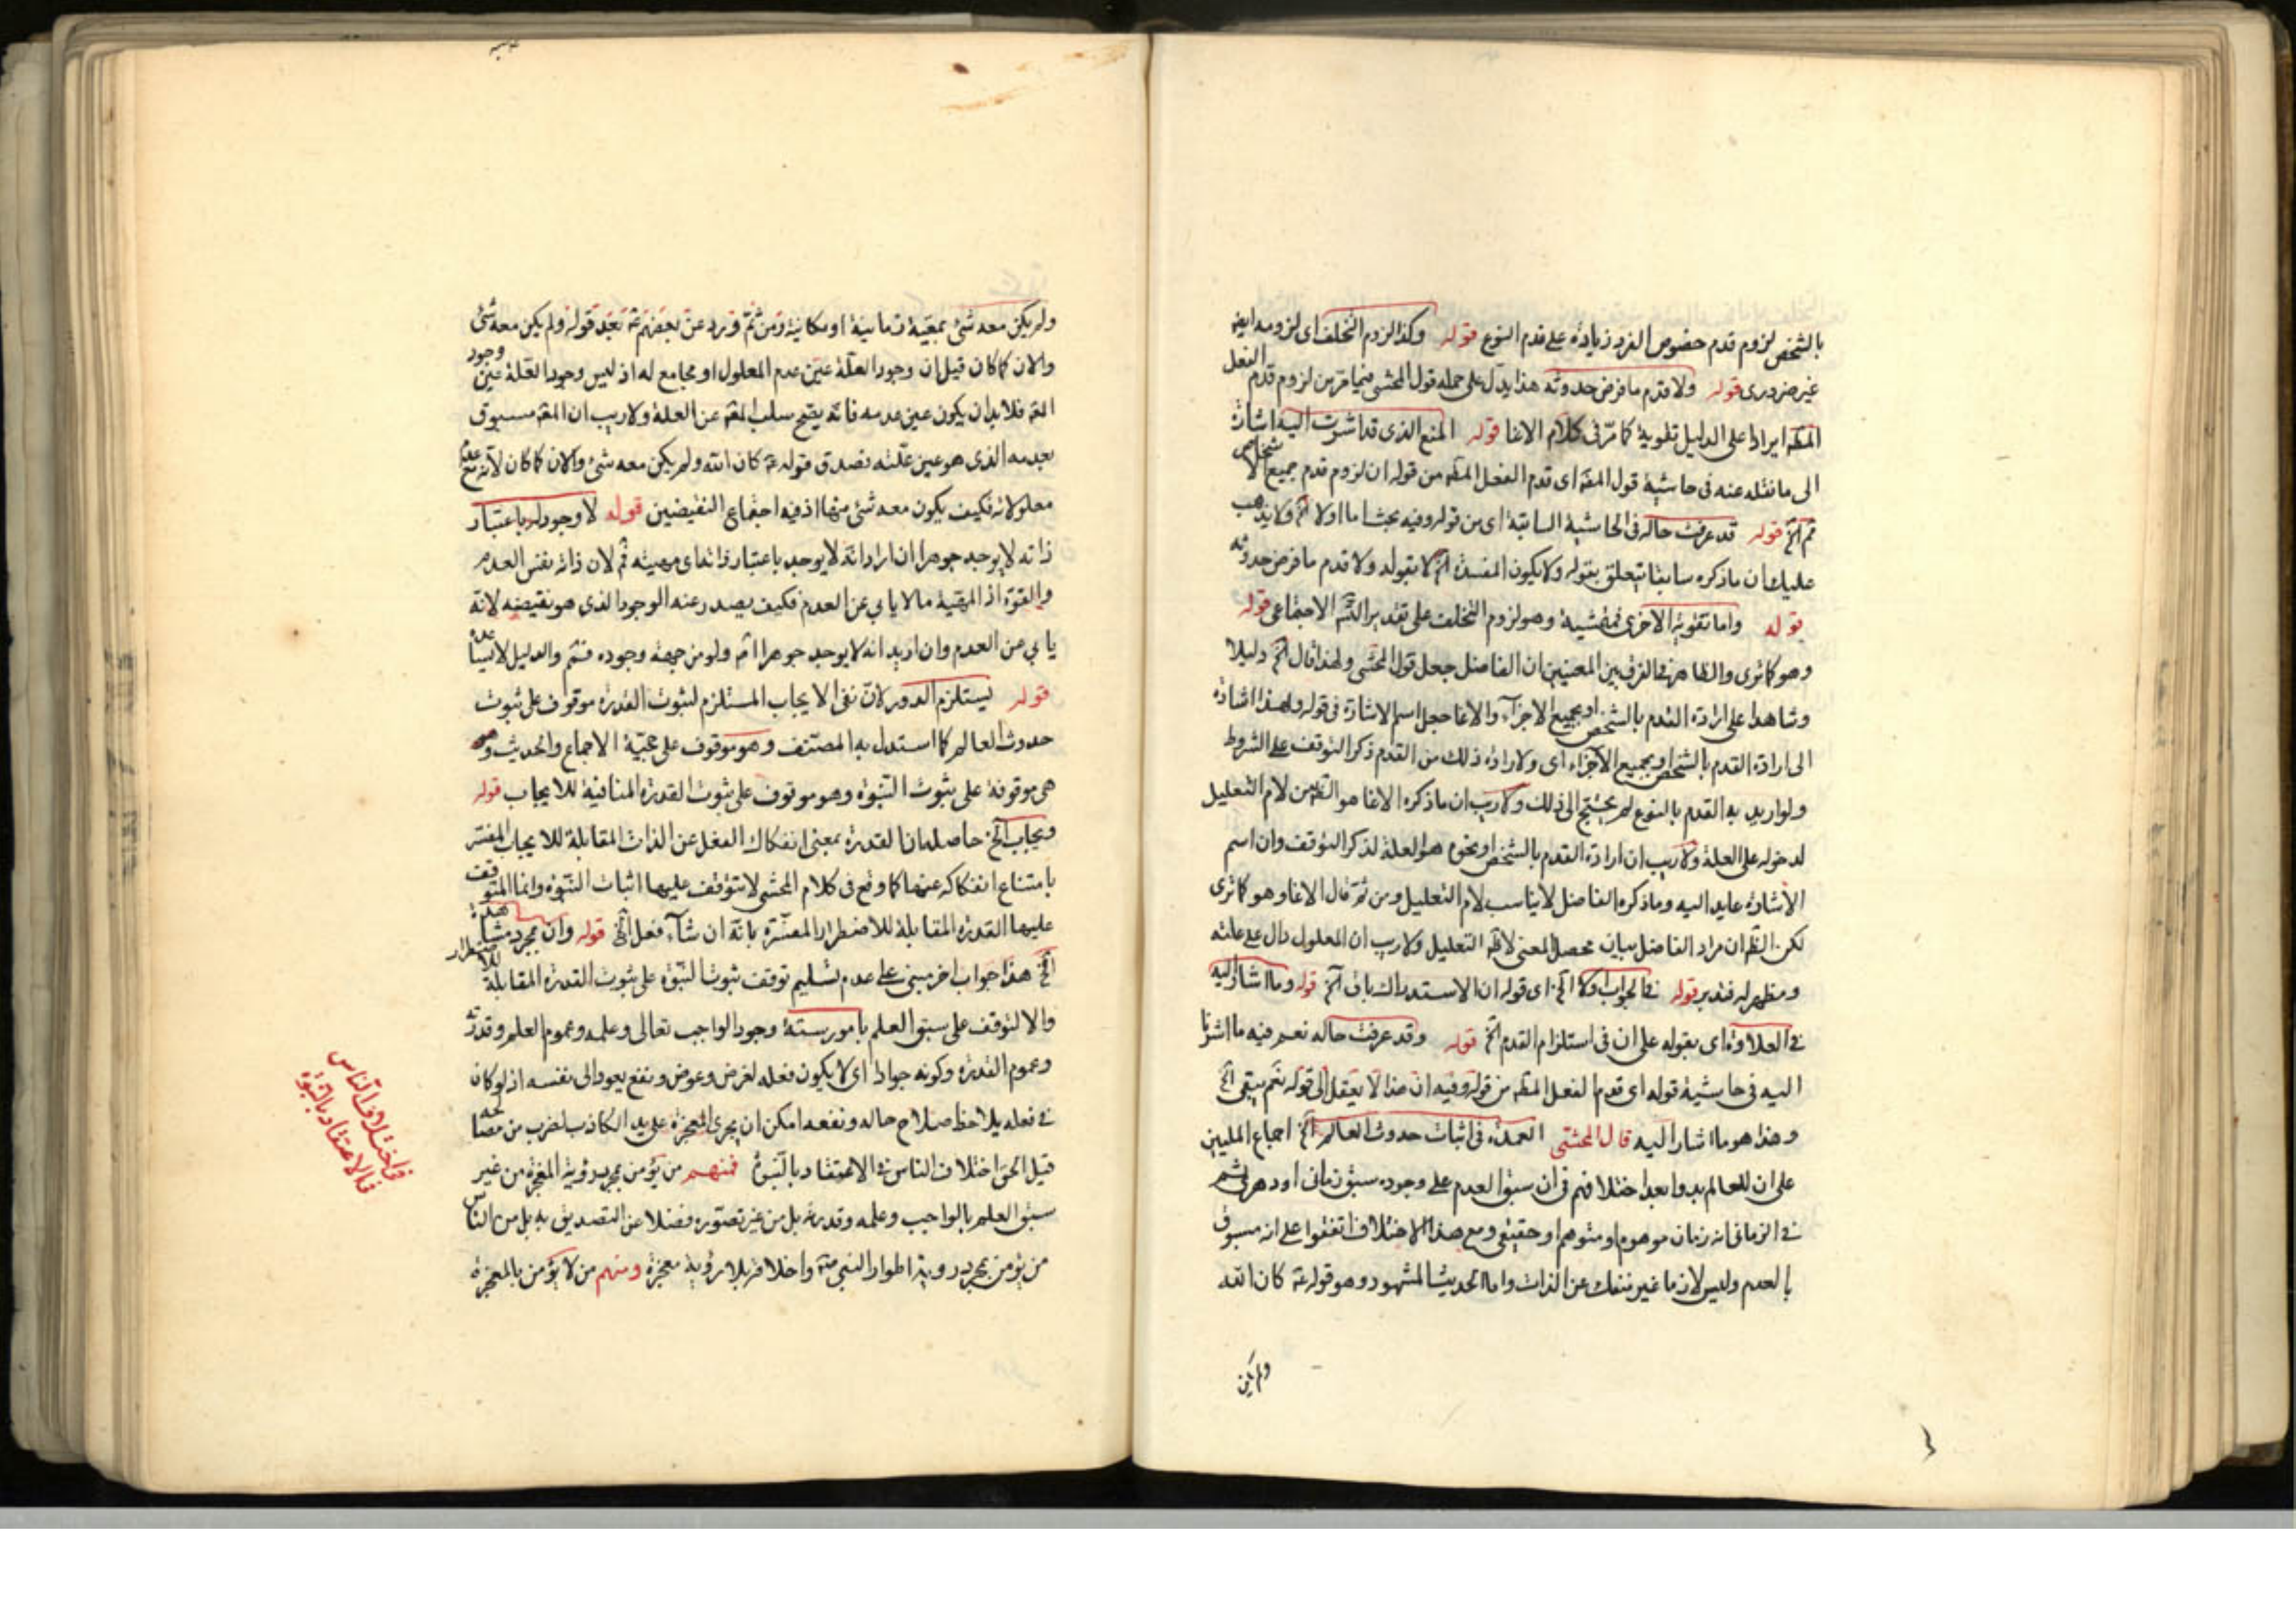 بالشخص لزوم قدم حضوص الفرد زيادة على قدم النوع قوله وكذا لزوم التخلف اى لزومه ايضا
غير ضرورى قوله ولا قدم ما فرض حدوثه هذا يدل على حمله قول المحشى فيما مر من لزوم قدم الفعل
المط ايراد على الدليل تقوية كما مر فى كلام الاغا قوله المنع الذى قد اشرت اليه اشارة
الى ما نقله عنه فى حاشية قول المص اى قدم الفعل المط من قوله ان لزوم قدم جميع الاشخاص
ثم الخ قوله قد عرفت حاله فى الحاشية السابقة اى من قوله وفيه بحث اما اولا الخ ولا يذهب
عليك ان ما ذكره سابقا يتعلق بقوله ولا يكون المفسدة الخ لا بقوله ولا قدم ما فرض حدوثه
قوله واما تقوية الاخرى فمشية وهو لزوم التخلف على تقدير الاجتماعى قوله
وهو كما ترى والظاهر فى الفرق بين المعنيين ان الفاضل جعل قول المحشى ولهذا قال الخ دليلا
وشاهدا على ارادة القدم بالشخص او بجميع الاجزاء والاغا جعل اسم الاشارة فى قوله ولهذا اشارة
الى ارادة القدم بالشخص او بجميع الاجزاء اى ولارادة ذلك من القدم ذكر التوقف على الشروط
ولو اريد به القدم بالنوع لم يحتج الى ذلك ولا ريب ان ما ذكره الاغا هو الظ من لام التعليل
لدخوله على العلة ولا ريب ان ارادة القدم بالشخص او نحوه هو العلة لذكر التوقف وان اسم
الاشارة عايد اليه وما ذكره الفاضل لا يناسب لام التعليل ومن ثم قال الاغا وهو كما ترى
لكن الظ ان مراد الفاضل بيان محصل المعنى لا لام التعليل ولا ريب ان المعلول دال على علته
ومظهر له فتدبر قوله فى الجواب اولا الخ اى قوله ان الاستدراك باق الخ قوله وما اشار اليه
فى العلاوة اى بقوله على ان فى استلزام القدم الخ قوله وقد عرفت حاله نعم فيه ما اشرنا
اليه فى حاشية قوله اى قدم الفعل المط من قوله وفيه ان هذا لا يعقل الى قوله نعم يبقى الخ
وهذا هو ما اشار اليه قال المحشى العمدة فى اثبات حدوث العالم الخ اجماع المليين
على ان للعالم بدوا بعد اختلافهم فى ان سبق العدم على وجوده سبق زمانى او دهرى ثم
فى الزمانى انه زمان موهوم او متوهم او حقيقى ومع هذا الاختلاف اتفقوا على انه مسبوق
بالعدم وليس لازما غير منفك عن الذات واما الحديث المشهور وهو قوله ع كان الله
ولم يكن
ولم يكن معه شئ بمعية زمانية او مكانية ومن ثم ورد عن بعضهم ع بعد قوله ولم يكن معه شئ
والان كما كان قيل ان وجود العلة عين عدم المعلول او مجامع له اذ ليس وجود العلة عين وجود
المع فلا بد ان يكون عين عدمه فانه يصح سلب المع عن العلة ولا ريب ان المع مسبوق
بعدمه الذى هو عين علته فصدق قوله ع كان الله ولم يكن معه شئ والان كما كان لانه مع عدم
معلولاته فكيف يكون معه شئ منها اذ فيه اجتماع النقيضين قوله لا وجود له باعتبار
ذاته لا يوجد جوهرا ان اراد انه لا يوجد باعتبار ذاته اى مهيته ثم لان ذاته نفس العدم
والقوة اذ المهية ما لا يابى عن العدم فكيف يصدر عنه الوجود الذى هو نقيضه لانه
يابى من العدم وان اريد انه لا يوجد جوهرا الخ ولو من جهة وجوده فثم والدليل لا يساعده
قوله يستلزم الدور لان نفى الايجاب المستلزم لثبوت القدرة موقوف على ثبوت
حدوث العالم كما استدل به المصنف وهو موقوف على حجية الاجماع والحديث وهو
هى موقوفة على ثبوت النبوة وهو موقوف على ثبوت القدرة المنافية للايجاب قوله
ويجاب الخ حاصله ان القدرة بمعنى انفكاك الفعل عن الذات المقابلة للايجاب المفسر
بامتناع انفكاكه عنها كما وقع فى كلام المحشى لا تتوقف عليها اثبات النبوة وانما المتوقف
عليها القدرة المقابلة للاضطرار المفسرة بانه ان شاء فعل الخ قوله وان مجرد مشاهدة
الخ هذا جواب اخر مبنى على عدم تسليم توقف ثبوت النبوة على ثبوت القدرة المقابلة للاضطرار
والا لتوقف على سبق العلم بامور ستة وجود الواجب تعالى وعلمه وعموم العلم وقدرته
وعموم القدرة وكونه جوادا اى لا يكون فعله لغرض وعوض ونفع يعود الى نفسه اذ لو كان
فى فعله يلاحظ صلاح حاله ونفعه امكن ان يجرى المعجزة على يد الكاذب لضرب من مصالحه
قيل الحق اختلاف الناس فى الاعتقاد بالنبوة فمنهم من يؤمن بمجرد رؤية المعجزة من غير
سبق العلم بالواجب وعلمه وقدرته بل من غير تصوره فضلا عن التصديق به بل من الناس
من يؤمن بمجرد رؤية اطوار النبى ص واخلاقه بلا رؤية معجزة ومنهم من لا يؤمن بالمعجزة
فى اختلاف الناس
فى الاعتقاد بالنبوة